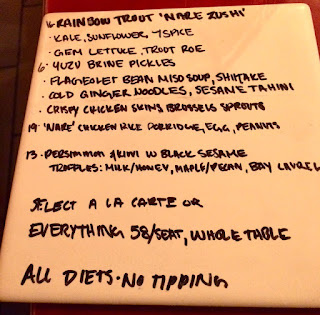 16 RAINBOW TROUT 'NARE ZUSHI'
· KALE, SUNFLOWER, 7SPICE
· GEM LETTUCE, TROUT ROE
6 · YUZU BRINE PICKLES
· FLAGEOLET BEAN MISO SOUP, SHIITAKE
· COLD GINGER NOODLES, SESAME TAHINI
· CRISPY CHICKEN SKINS BRUSSELS SPROUTS
19 'NARE' CHICKEN RICE PORRIDGE, EGG, PEANUTS
13 · PERSIMMON & KIWI W BLACK SESAME
TRUFFLES: MILK/HONEY, MAPLE/PECAN, BAY LAUREL
SELECT A LA CARTE OR
EVERYTHING 58/SEAT, WHOLE TABLE
ALL DIETS · NO TIPPING